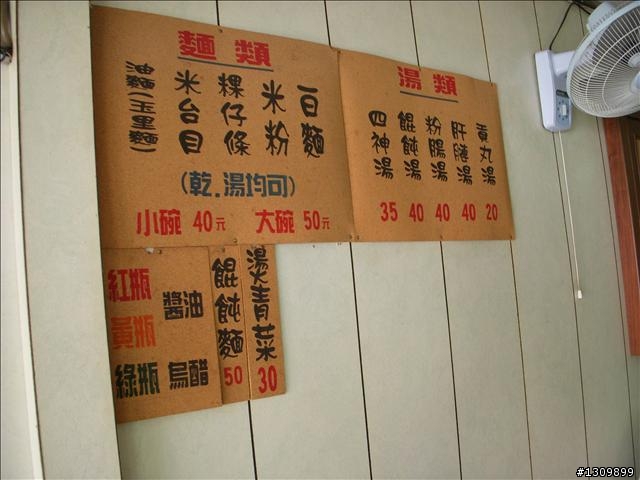 麵類
油麵(玉里麵)
米台目
粿仔條
米粉
白麵
(乾.湯均可)
小碗 40元 大碗 50元
湯類
四神湯 35
餛飩湯 40
粉腸湯 40
肝膁湯 40
貢丸湯 20
紅瓶 醬油
黃瓶
綠瓶 烏醋
餛飩麵 50
燙青菜 30
#1309899